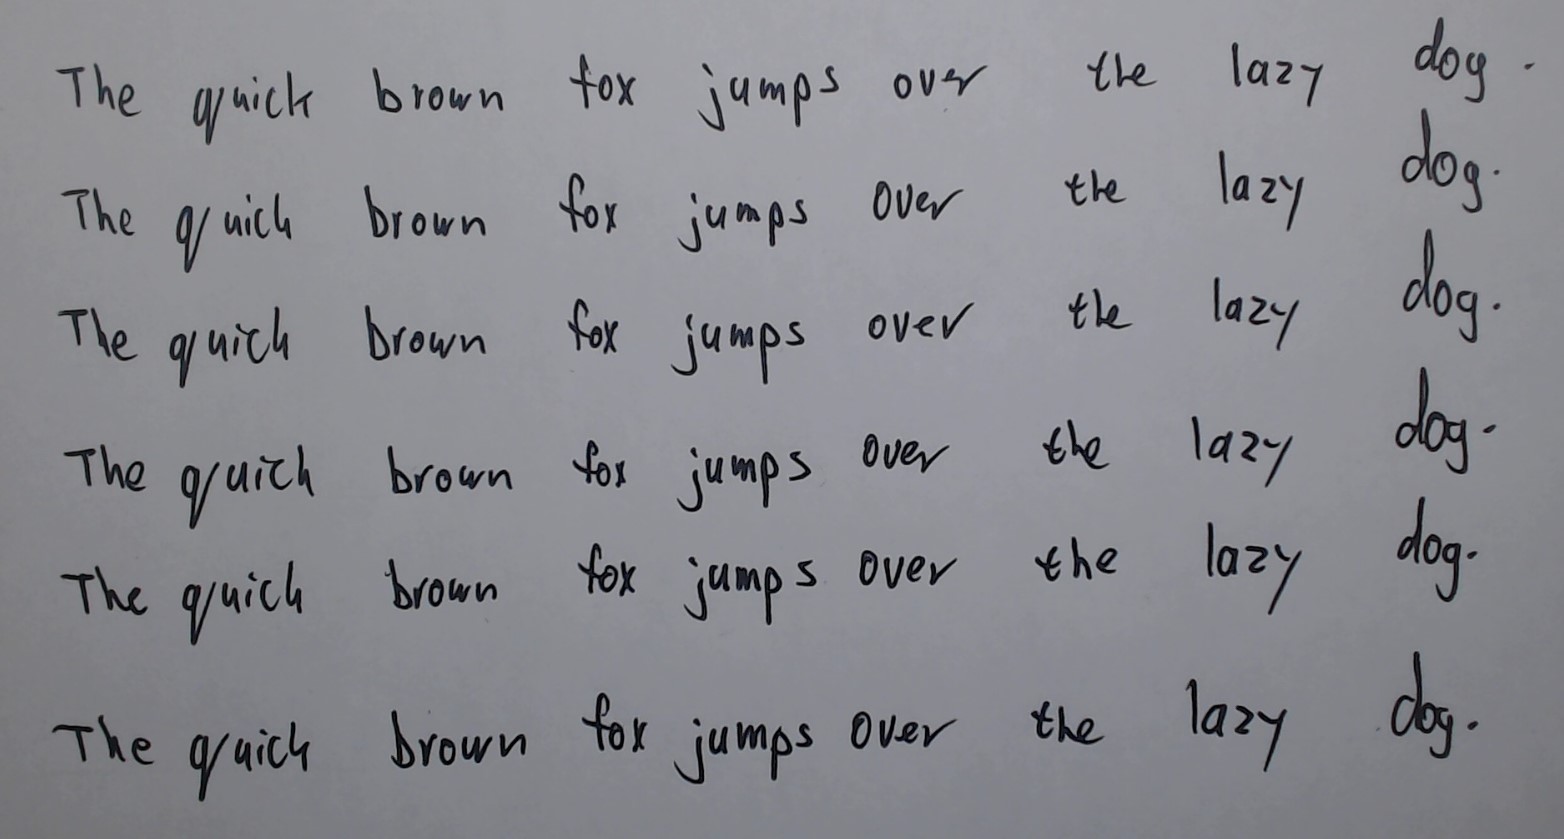 The quick brown fox jumps over the lazy dog.
The quick brown fox jumps over the lazy dog.
The quick brown fox jumps over the lazy dog.
The quick brown fox jumps over the lazy dog.
The quick brown fox jumps over the lazy dog.
The quick brown fox jumps over the lazy dog.